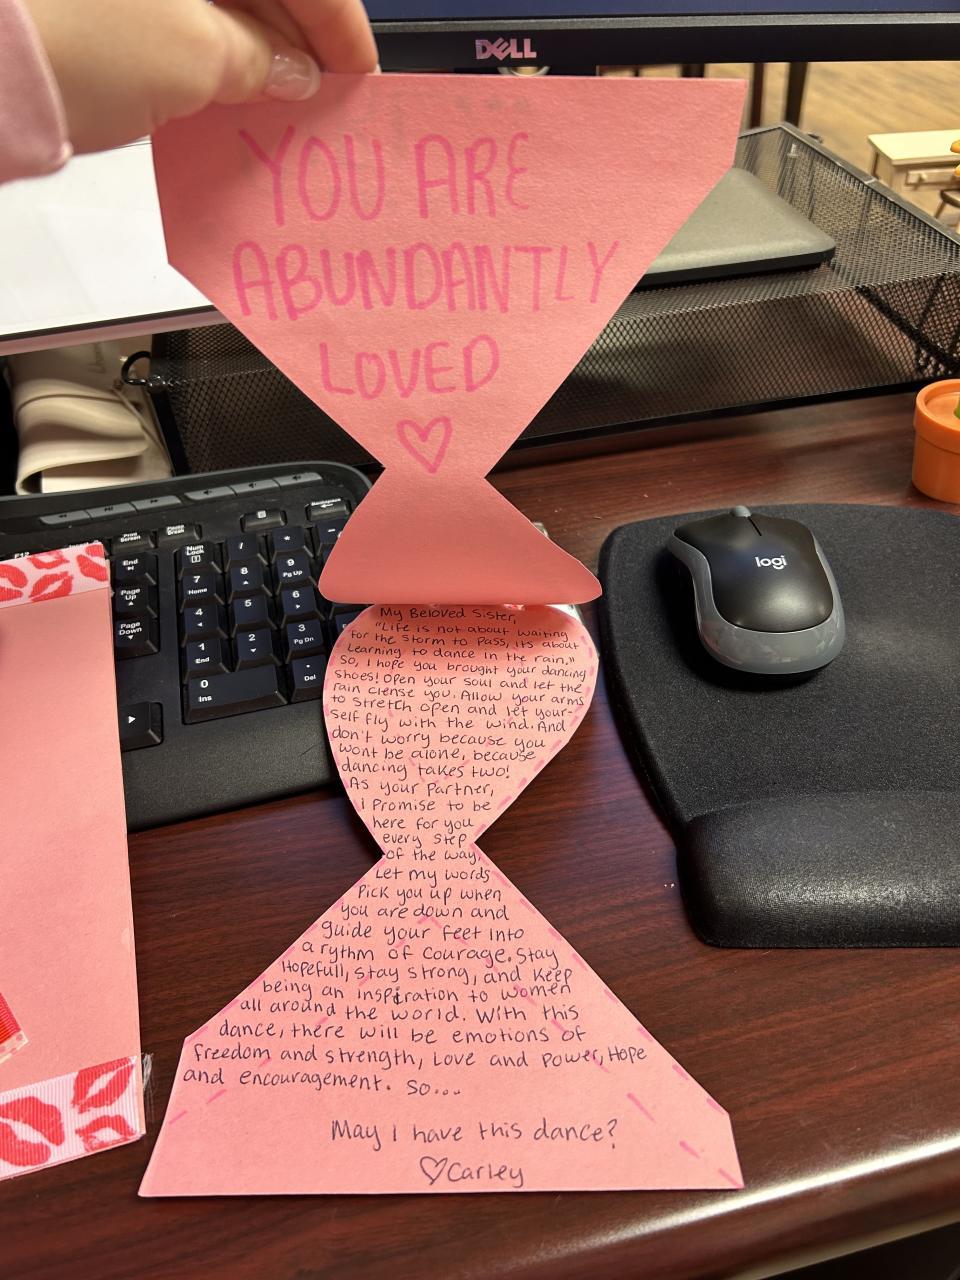 DELL
YOU ARE
ABUNDANTLY
LOVED
My Beloved Sister,
"Life is not about waiting
for the storm to pass, its about
learning to dance in the rain."
So, I hope you brought your dancing
shoes! Open your soul and let the
rain clense you. Allow your arms
to stretch open and let your-
self fly with the wind. And
don't worry because you
wont be alone, because
dancing takes two!
As your partner,
i promise to be
here for you
every step
of the way.
Let my words
Pick you up when
you are down and
guide your feet into
a rythm of courage. Stay
Hopefull, stay strong, and keep
being an inspiration to women
all around the world. With this
dance, there will be emotions of
freedom and strength, Love and Power, Hope
and encouragement. So...
May I have this dance?
♡Carley
logi
F12
Print
Screen
Pause
Break
Backspace
End
Page
Up
Page
Down
Num
Lock
/
*
-
7
Home
8
9
Pg Up
4
5
6
1
End
2
3
Pg Dn
0
Ins
.
Del